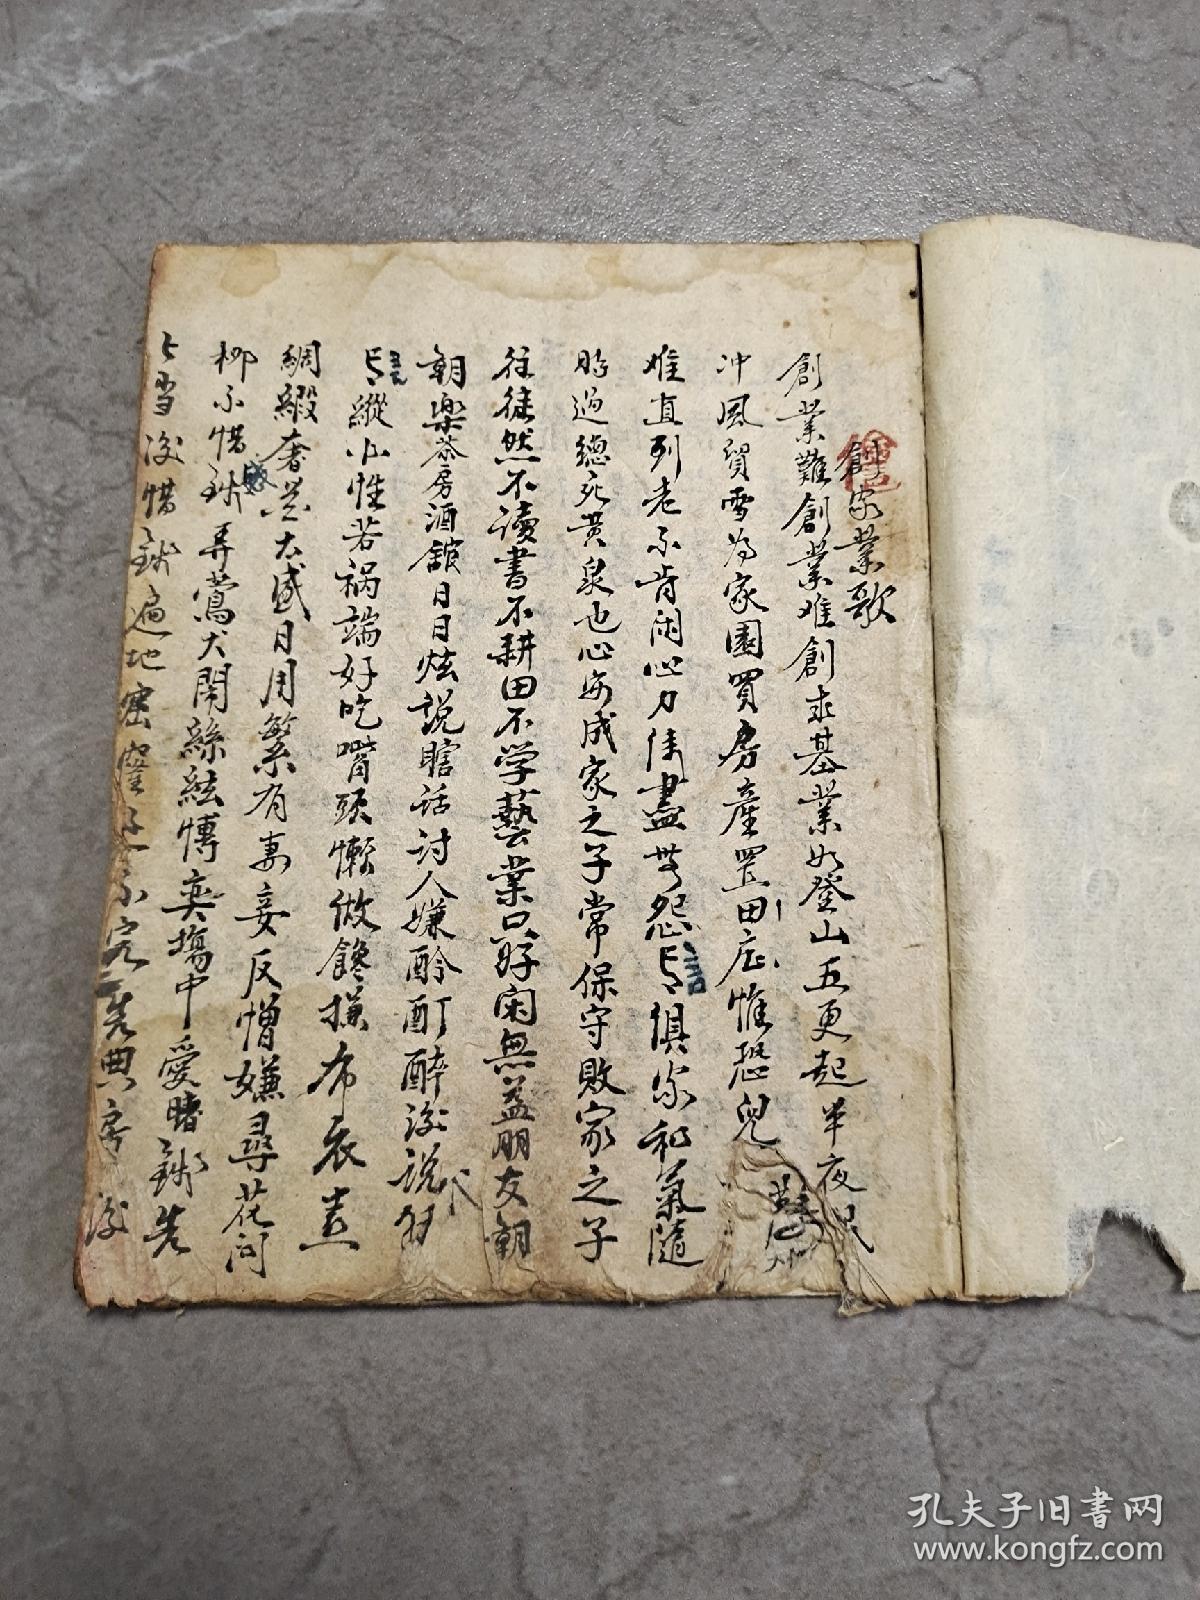 創家業歌
創業難創業难創求基業如登山五更起半夜眠
冲風冒雪为家園買房產置田庄惟恐兒
难直到老不肯闲心力俱盡無怨言俱家和氣隨
時過總死黄泉也心安成家之子常保守敗家之子
往徒然不读書不耕田不学藝業只好闲無益朋友朝
朝樂茶房酒館日日炫説瞎话讨人嫌酩酊醉後説
言縱小性若祸端好吃嘴頭懒做饞嫌布衣
綢緞奢华太盛日用繁有妻妾反憎嫌尋花问
柳不惜錢弄鶯犬閙絲絃博奕塲中愛賭錢先
当後惜錢遍地窑窿不完先典房後
孔夫子旧书网
www.kongfz.com